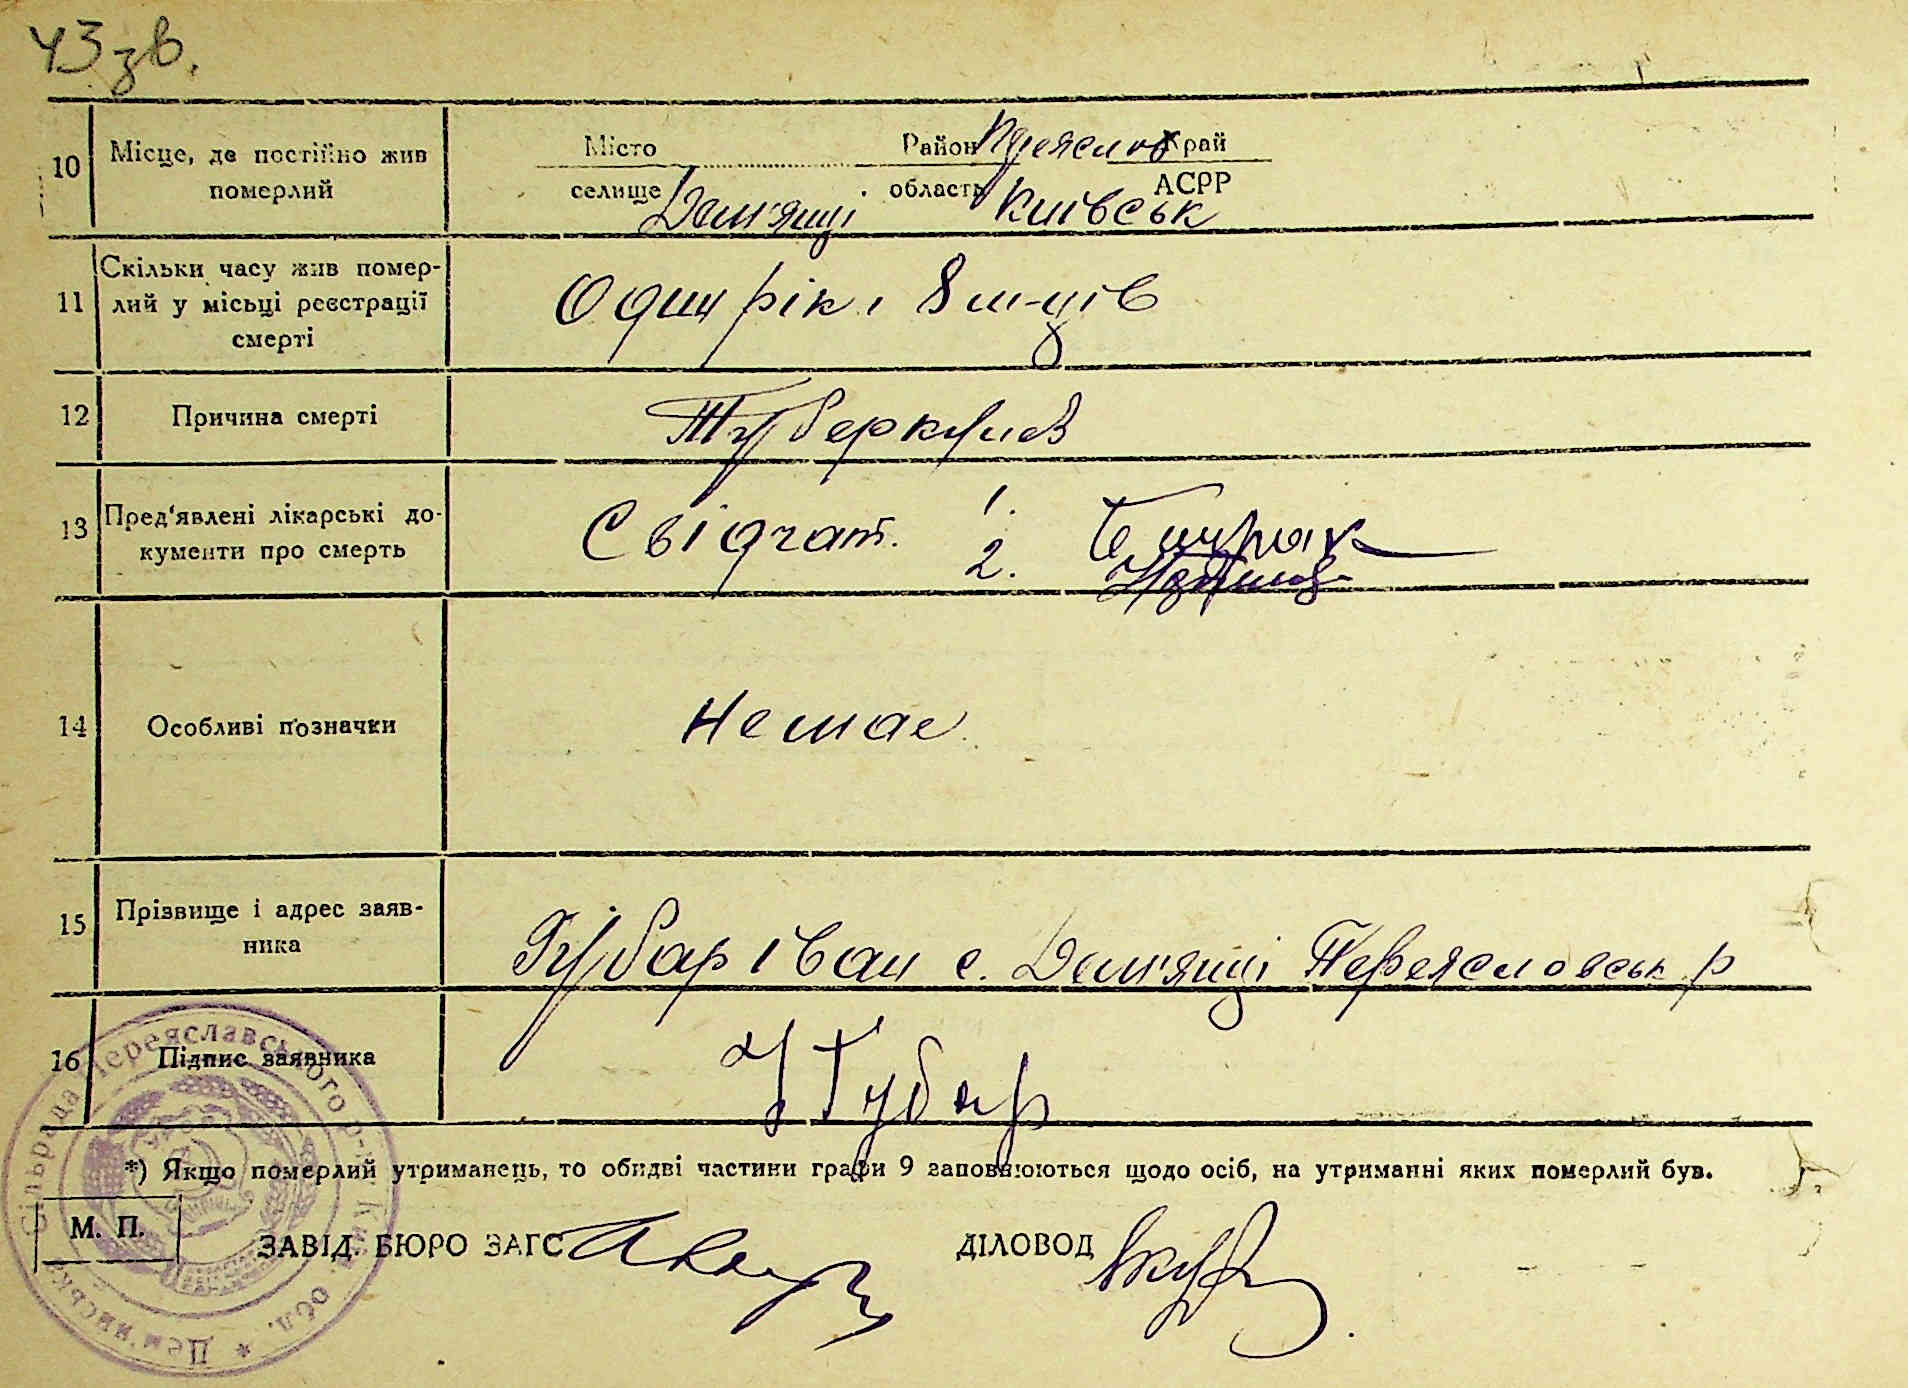 43 зв.
10 Місце, де постійно жив померлий Місто Район Переяслов Край
селище Дем'янці область Київськ АСРР
11 Скільки часу жив помер-
лий у місьці реєстрації
смерті
Один рік і 8 м-ців
12 Причина смерті Туберкульоз
13 Пред'явлені лікарські до-
кументи про смерть
Свідчат. 1.
2.
14 Особливі позначки Немає
15 Прізвище і адрес заяв-
ника
Губар Іван с. Дем'янці Переясловськ р
16 Підпис заявника Губар
*) Якщо померлий утриманець, то обидві частини графи 9 заповнюються щодо осіб, на утриманні яких померлий був.
М. П. ЗАВІД. БЮРО ЗАГС ДІЛОВОД
Сільрада Переяславського р-ну Київ. обл. * Дем'янська